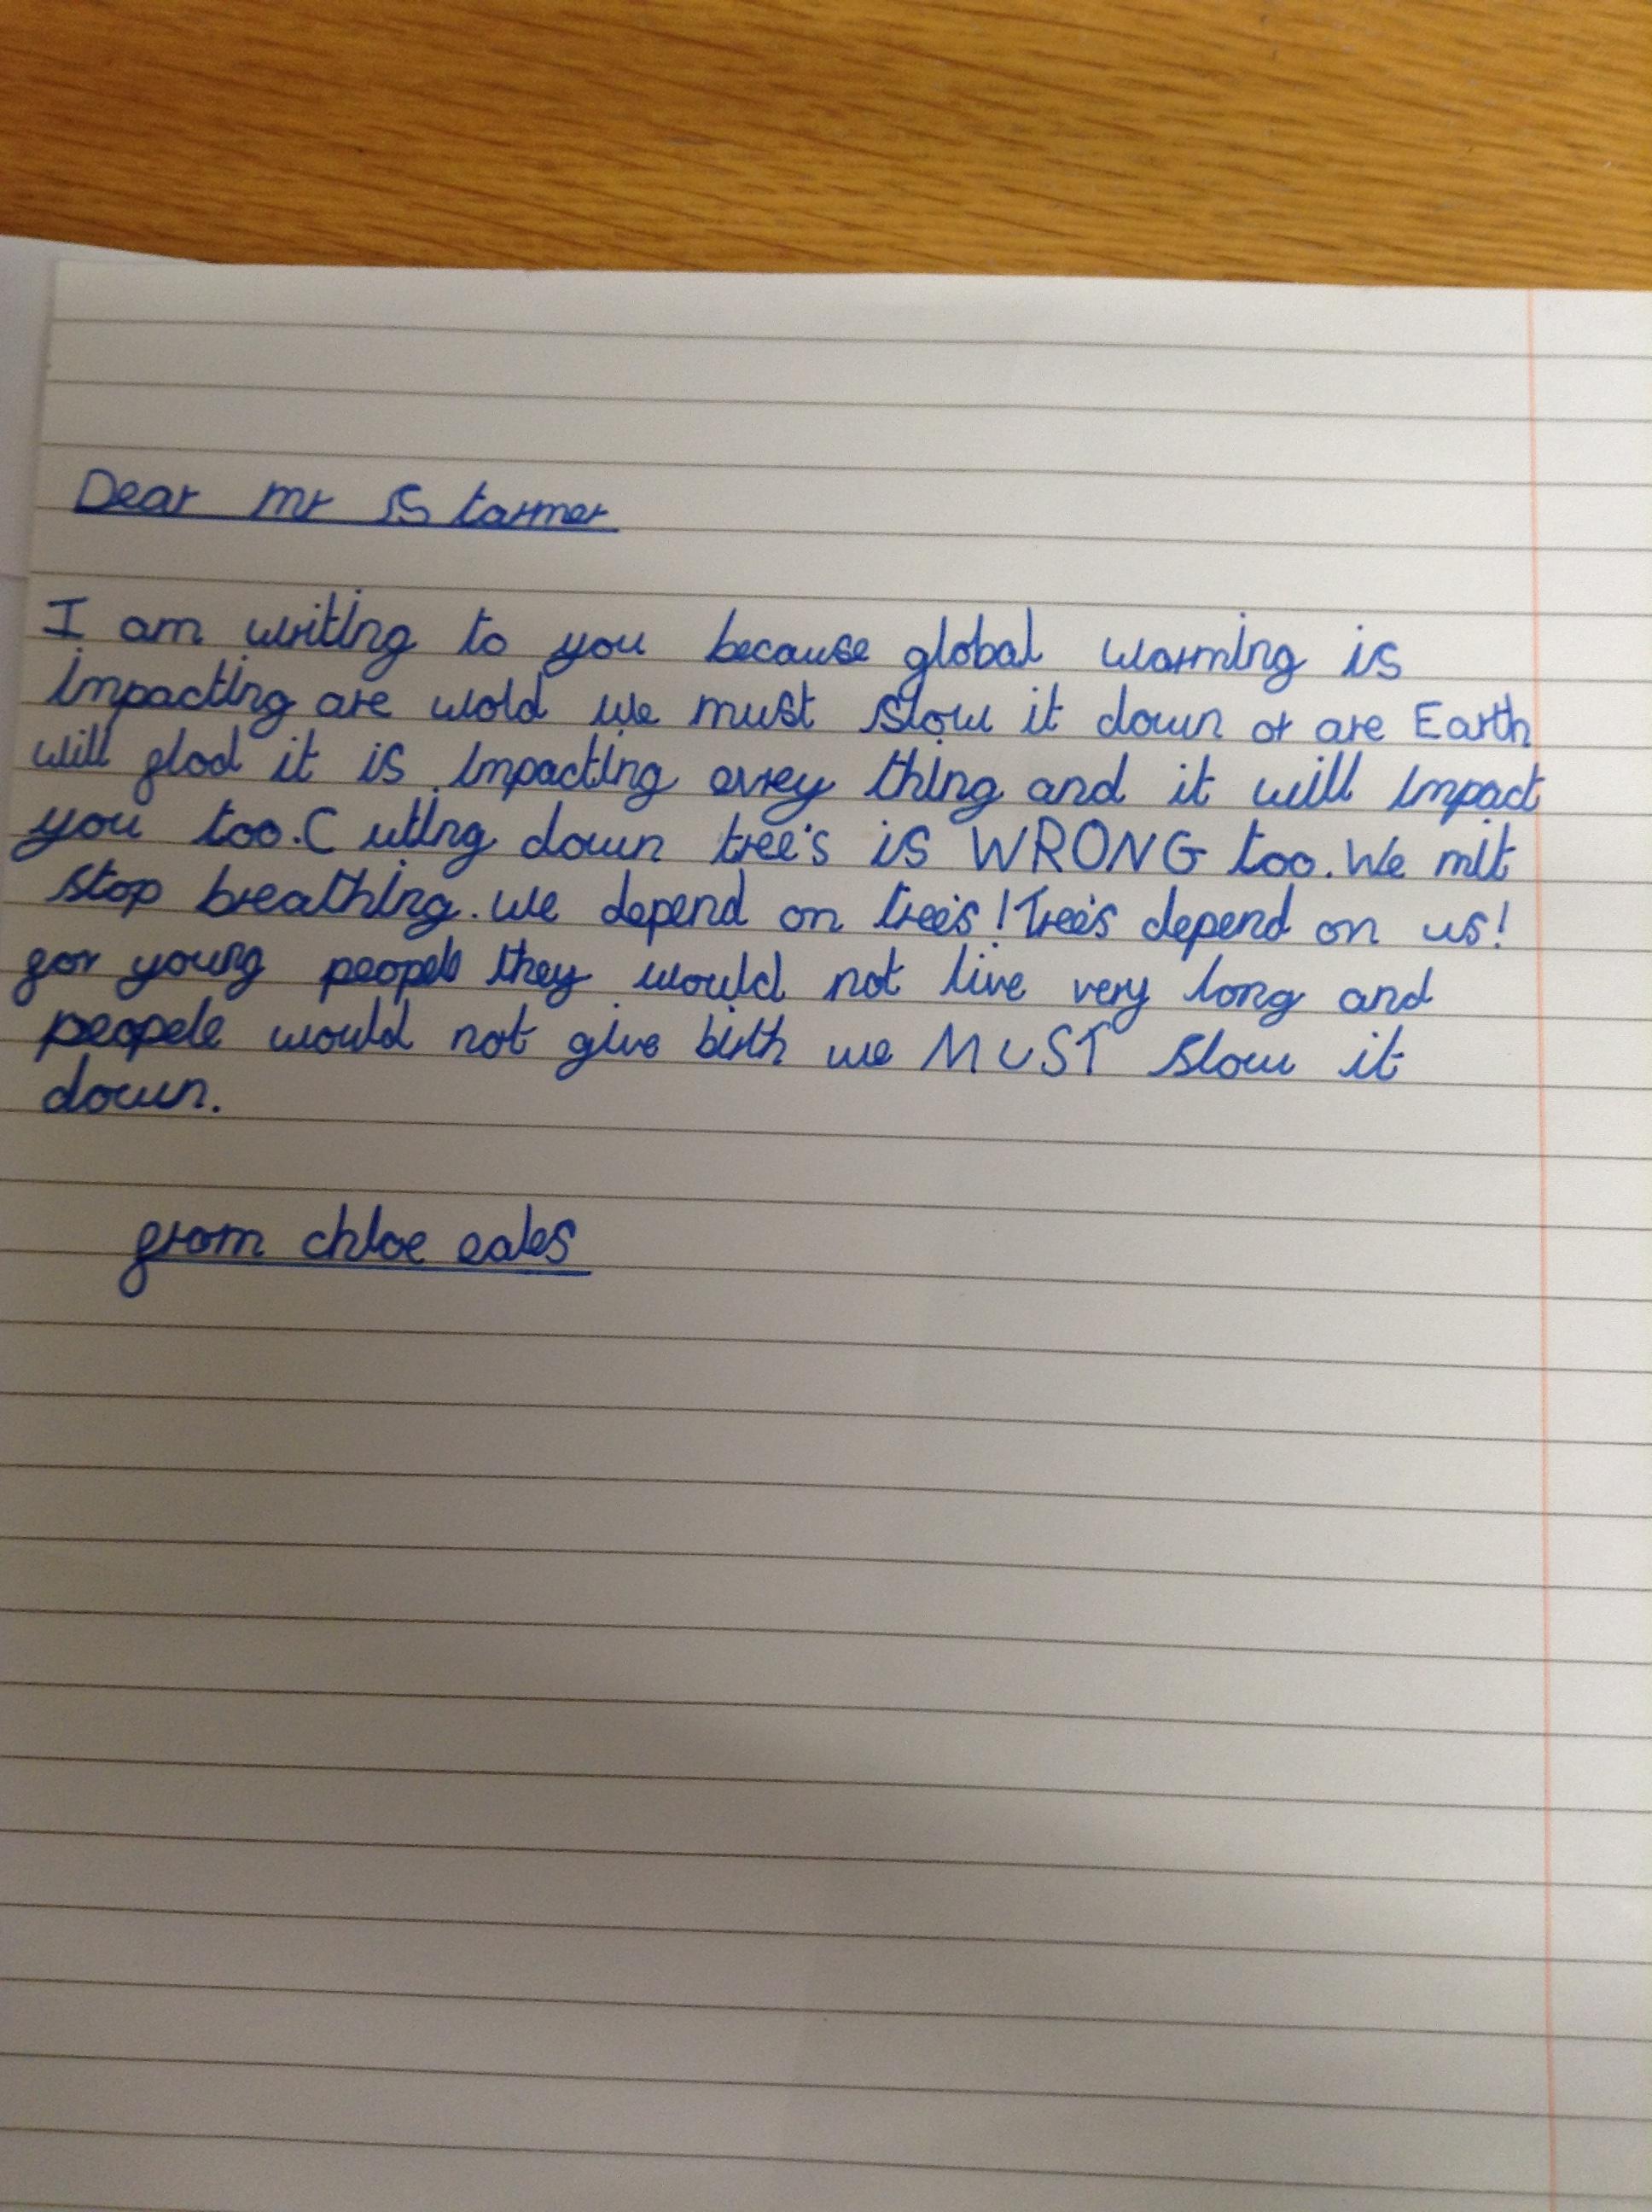 Dear mr Starmer
I am writing to you because global warming is
impacting are wold we must slow it down or are Earth
will flod it is impacting evrey thing and it will impact
you too. Cuting down tree's is WRONG too. We mit
stop breathing. we depend on tree's! Tree's depend on us!
for young peopele they would not live very long and
peopele would not give birth we MUST slow it
down.
from chloe eales